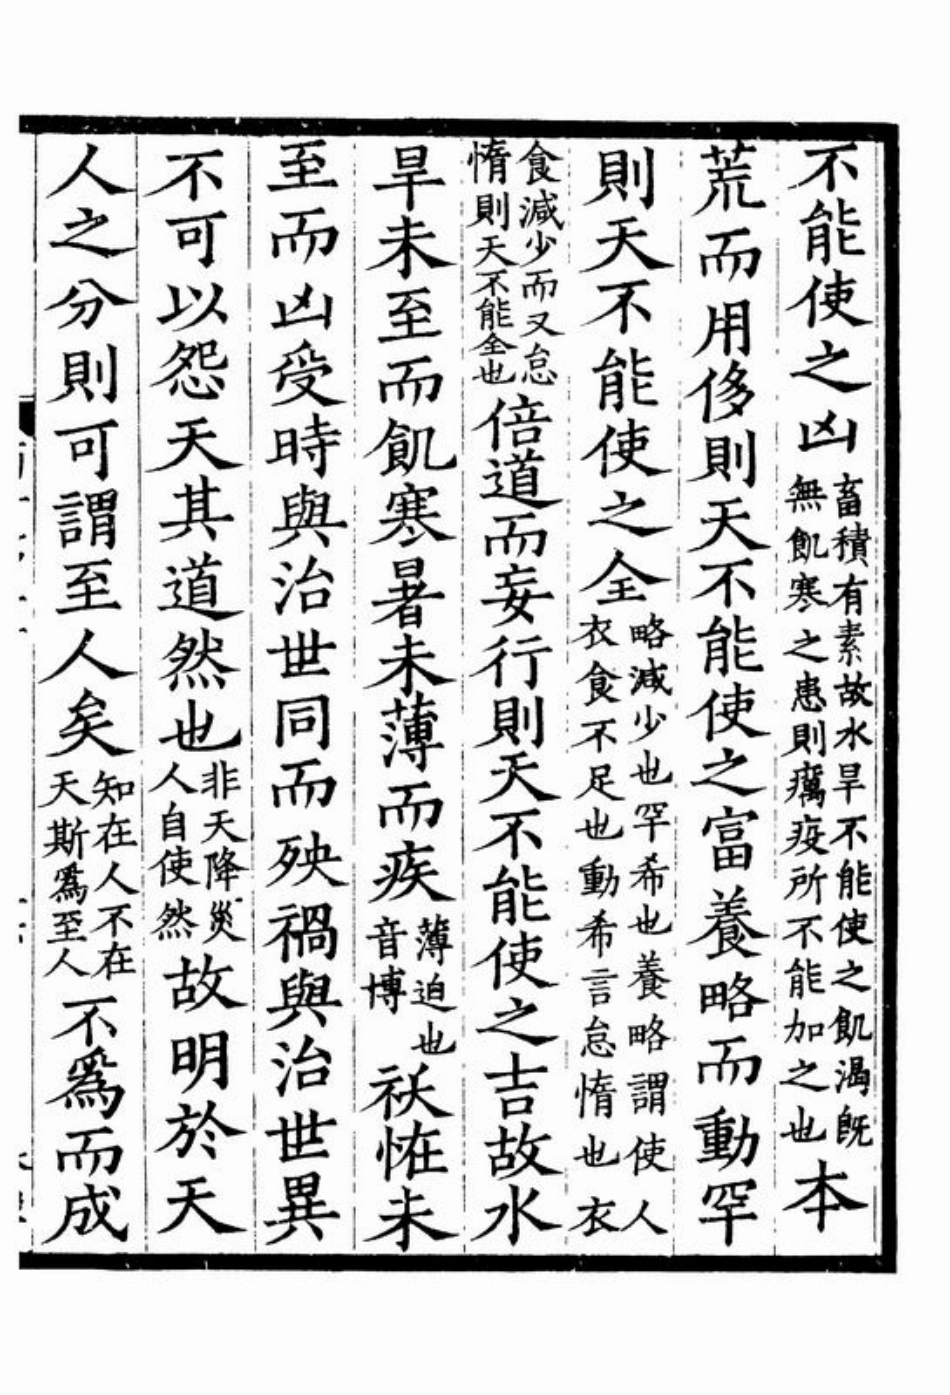 不能使之凶畜積有素故水旱不能使之飢渴既無飢寒之患則癘疫所不能加之也本
荒而用侈則天不能使之富養略而動罕
則天不能使之全略減少也罕希也養略謂使人衣食不足也動希言怠惰也衣
食減少而又怠惰則天不能全也倍道而妄行則天不能使之吉故水
旱未至而飢寒暑未薄而疾薄迫也音博祅恠未
至而凶受時與治世同而殃禍與治世異
不可以怨天其道然也非天降災人自使然故明於天
人之分則可謂至人矣知在人不在天斯爲至人不爲而成